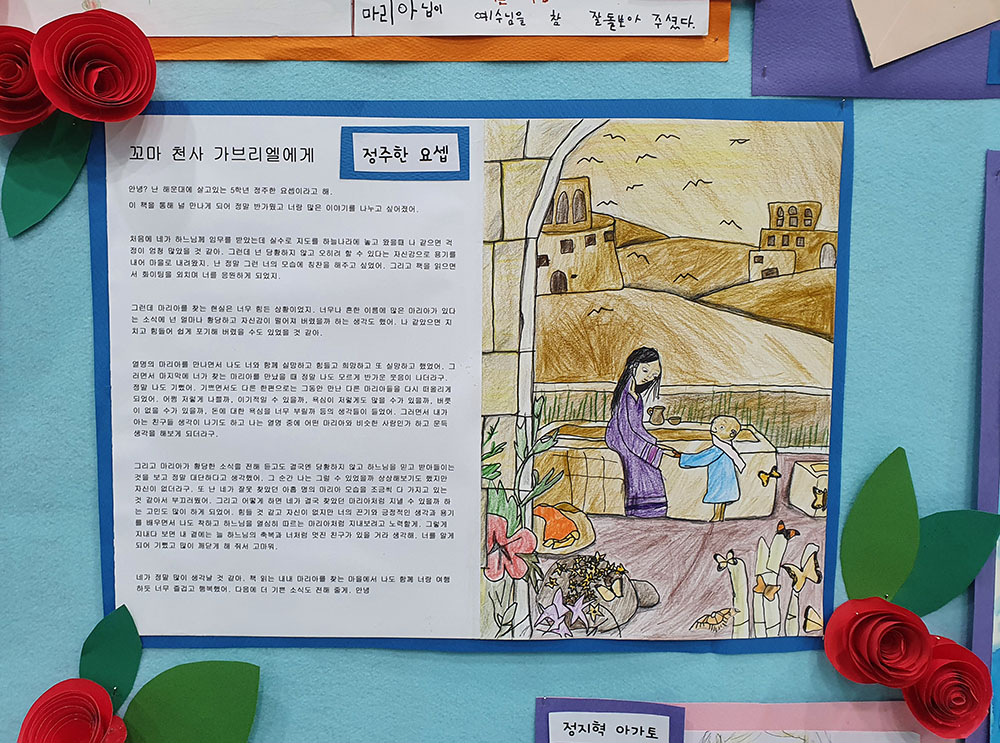 마리아님이 예수님을 참 잘돌보아 주셨다.
꼬마 천사 가브리엘에게
정주한 요셉
안녕? 난 해운대에 살고있는 5학년 정주한 요셉이라고 해.
이 책을 통해 널 만나게 되어 정말 반가웠고 너랑 많은 이야기를 나누고 싶어졌어.
처음에 네가 하느님께 임무를 받았는데 실수로 지도를 하늘나라에 놓고 왔을때 나 같으면 걱
정이 엄청 많았을 것 같아. 그런데 넌 당황하지 않고 오히려 할 수 있다는 자신감으로 용기를
내어 마을로 내려왔지. 난 정말 그런 너의 모습에 칭찬을 해주고 싶었어. 그리고 책을 읽으면
서 화이팅을 외치며 너를 응원하게 되었지.
그런데 마리아를 찾는 현실은 너무 힘든 상황이었지. 너무나 흔한 이름에 많은 마리아가 있다
는 소식에 넌 얼마나 황당하고 자신감이 떨어져 버렸을까 하는 생각도 했어. 나 같았으면 지
치고 힘들어 쉽게 포기해 버렸을 수도 있었을 것 같아.
열명의 마리아를 만나면서 나도 너와 함께 실망하고 힘들고 희망하고 또 실망하고 했었어. 그
러면서 마지막에 너가 찾는 마리아를 만났을 때 정말 나도 모르게 반가운 웃음이 나더라구.
정말 나도 기뻤어. 기쁘면서도 다른 한편으로는 그동안 만난 다른 마리아들을 다시 떠올리게
되었어. 어쩜 저렇게 나쁠까, 이기적일 수 있을까, 욕심이 저렇게도 많을 수가 있을까, 버릇
이 없을 수가 있을까, 돈에 대한 욕심을 너무 부릴까 등의 생각들이 들었어. 그러면서 내가
아는 친구들 생각이 나기도 하고 나는 열명 중에 어떤 마리아와 비슷한 사람인가 하고 문득
생각을 해보게 되더라구.
그리고 마리아가 황당한 소식을 전해 듣고도 결국엔 당황하지 않고 하느님을 믿고 받아들이는
것을 보고 정말 대단하다고 생각했어. 그 순간 나는 그럴 수 있었을까 상상해보기도 했지만
자신이 없더라구. 또 난 네가 잘못 찾았던 아홉 명의 마리아 모습을 조금씩 다 가지고 있는
것 같아서 부끄러웠어. 그리고 어떻게 하면 네가 결국 찾았던 마리아처럼 지낼 수 있을까 하
는 고민도 많이 하게 되었어. 힘들 것 같고 자신이 없지만 너의 끈기와 긍정적인 생각과 용기
를 배우면서 나도 착하고 하느님을 열심히 따르는 마리아처럼 지내보려고 노력할게. 그렇게
지내다 보면 내 곁에는 늘 하느님의 축복과 너처럼 멋진 친구가 있을 거라 생각해. 너를 알게
되어 기뻤고 많이 깨닫게 해 줘서 고마워.
네가 정말 많이 생각날 것 같아. 책 읽는 내내 마리아를 찾는 마을에서 나도 함께 너랑 여행
하듯 너무 즐겁고 행복했어. 다음에 더 기쁜 소식도 전해 줄게. 안녕
정지혁 아가토